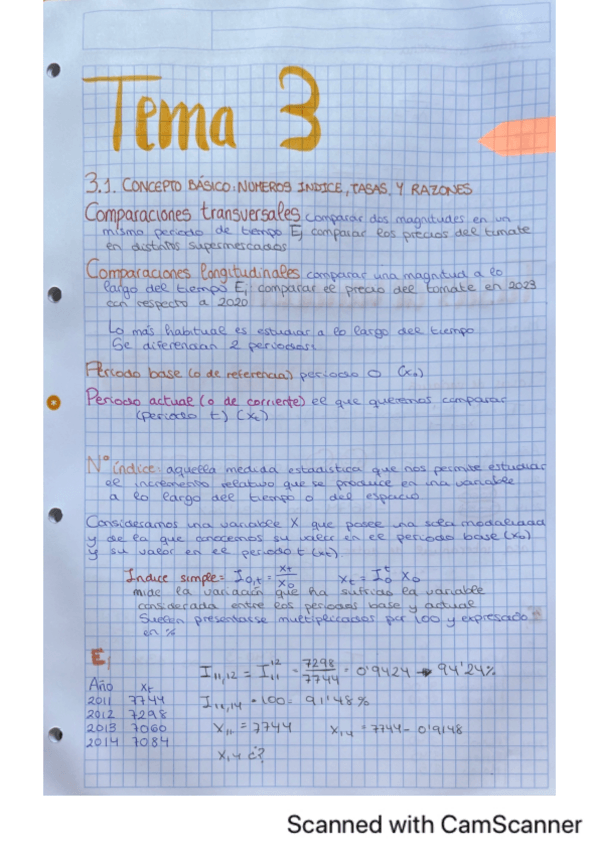 Tema 3
3.1. CONCEPTO BÁSICO: NÚMEROS INDICE, TASAS Y RAZONES
Comparaciones transversales comparar dos magnitudes en un
mismo periodo de tiempo Ej comparar los precios del tomate
en distintos supermercados
Comparaciones longitudinales comparar una magnitud a lo
largo del tiempo Ej comparar el precio del tomate en 2023
con respecto a 2020
Lo más habitual es estudiar a lo largo del tiempo
Se diferencian 2 periodos:
Periodo base (o de referencia) periodo 0 (x₀)
Periodo actual (o de corriente) el que queremos comparar
(periodo t) (xt)
Nº índice: aquella medida estadistica que nos permite estudiar
el incremento relativo que se produce en una variable
a lo largo del tiempo o del espacio
Consideramos una variable X que posee una sola modalidad
y de la que conocemos su valor en el periodo base (x₀)
y su valor en el periodo t (xt)
Indice simple = I₀,t = xt/x₀ xt = I₀ᵗ x₀
mide la variación que ha sufrido la variable
considerada entre los periodos base y actual
Suelen presentarse multiplicados por 100 y expresado
en %
Ej
Año xt
2011 7744
2012 7298
2013 7060
2014 7084
I₁₁,₁₂ = I₁₁¹² = 7298/7744 = 0'9424 → 94'24%
I₁₁,₁₄ · 100 = 91'48%
x₁₁ = 7744 x₁₄ = 7744 - 0'9148
x₁₄ ¿?
Scanned with CamScanner